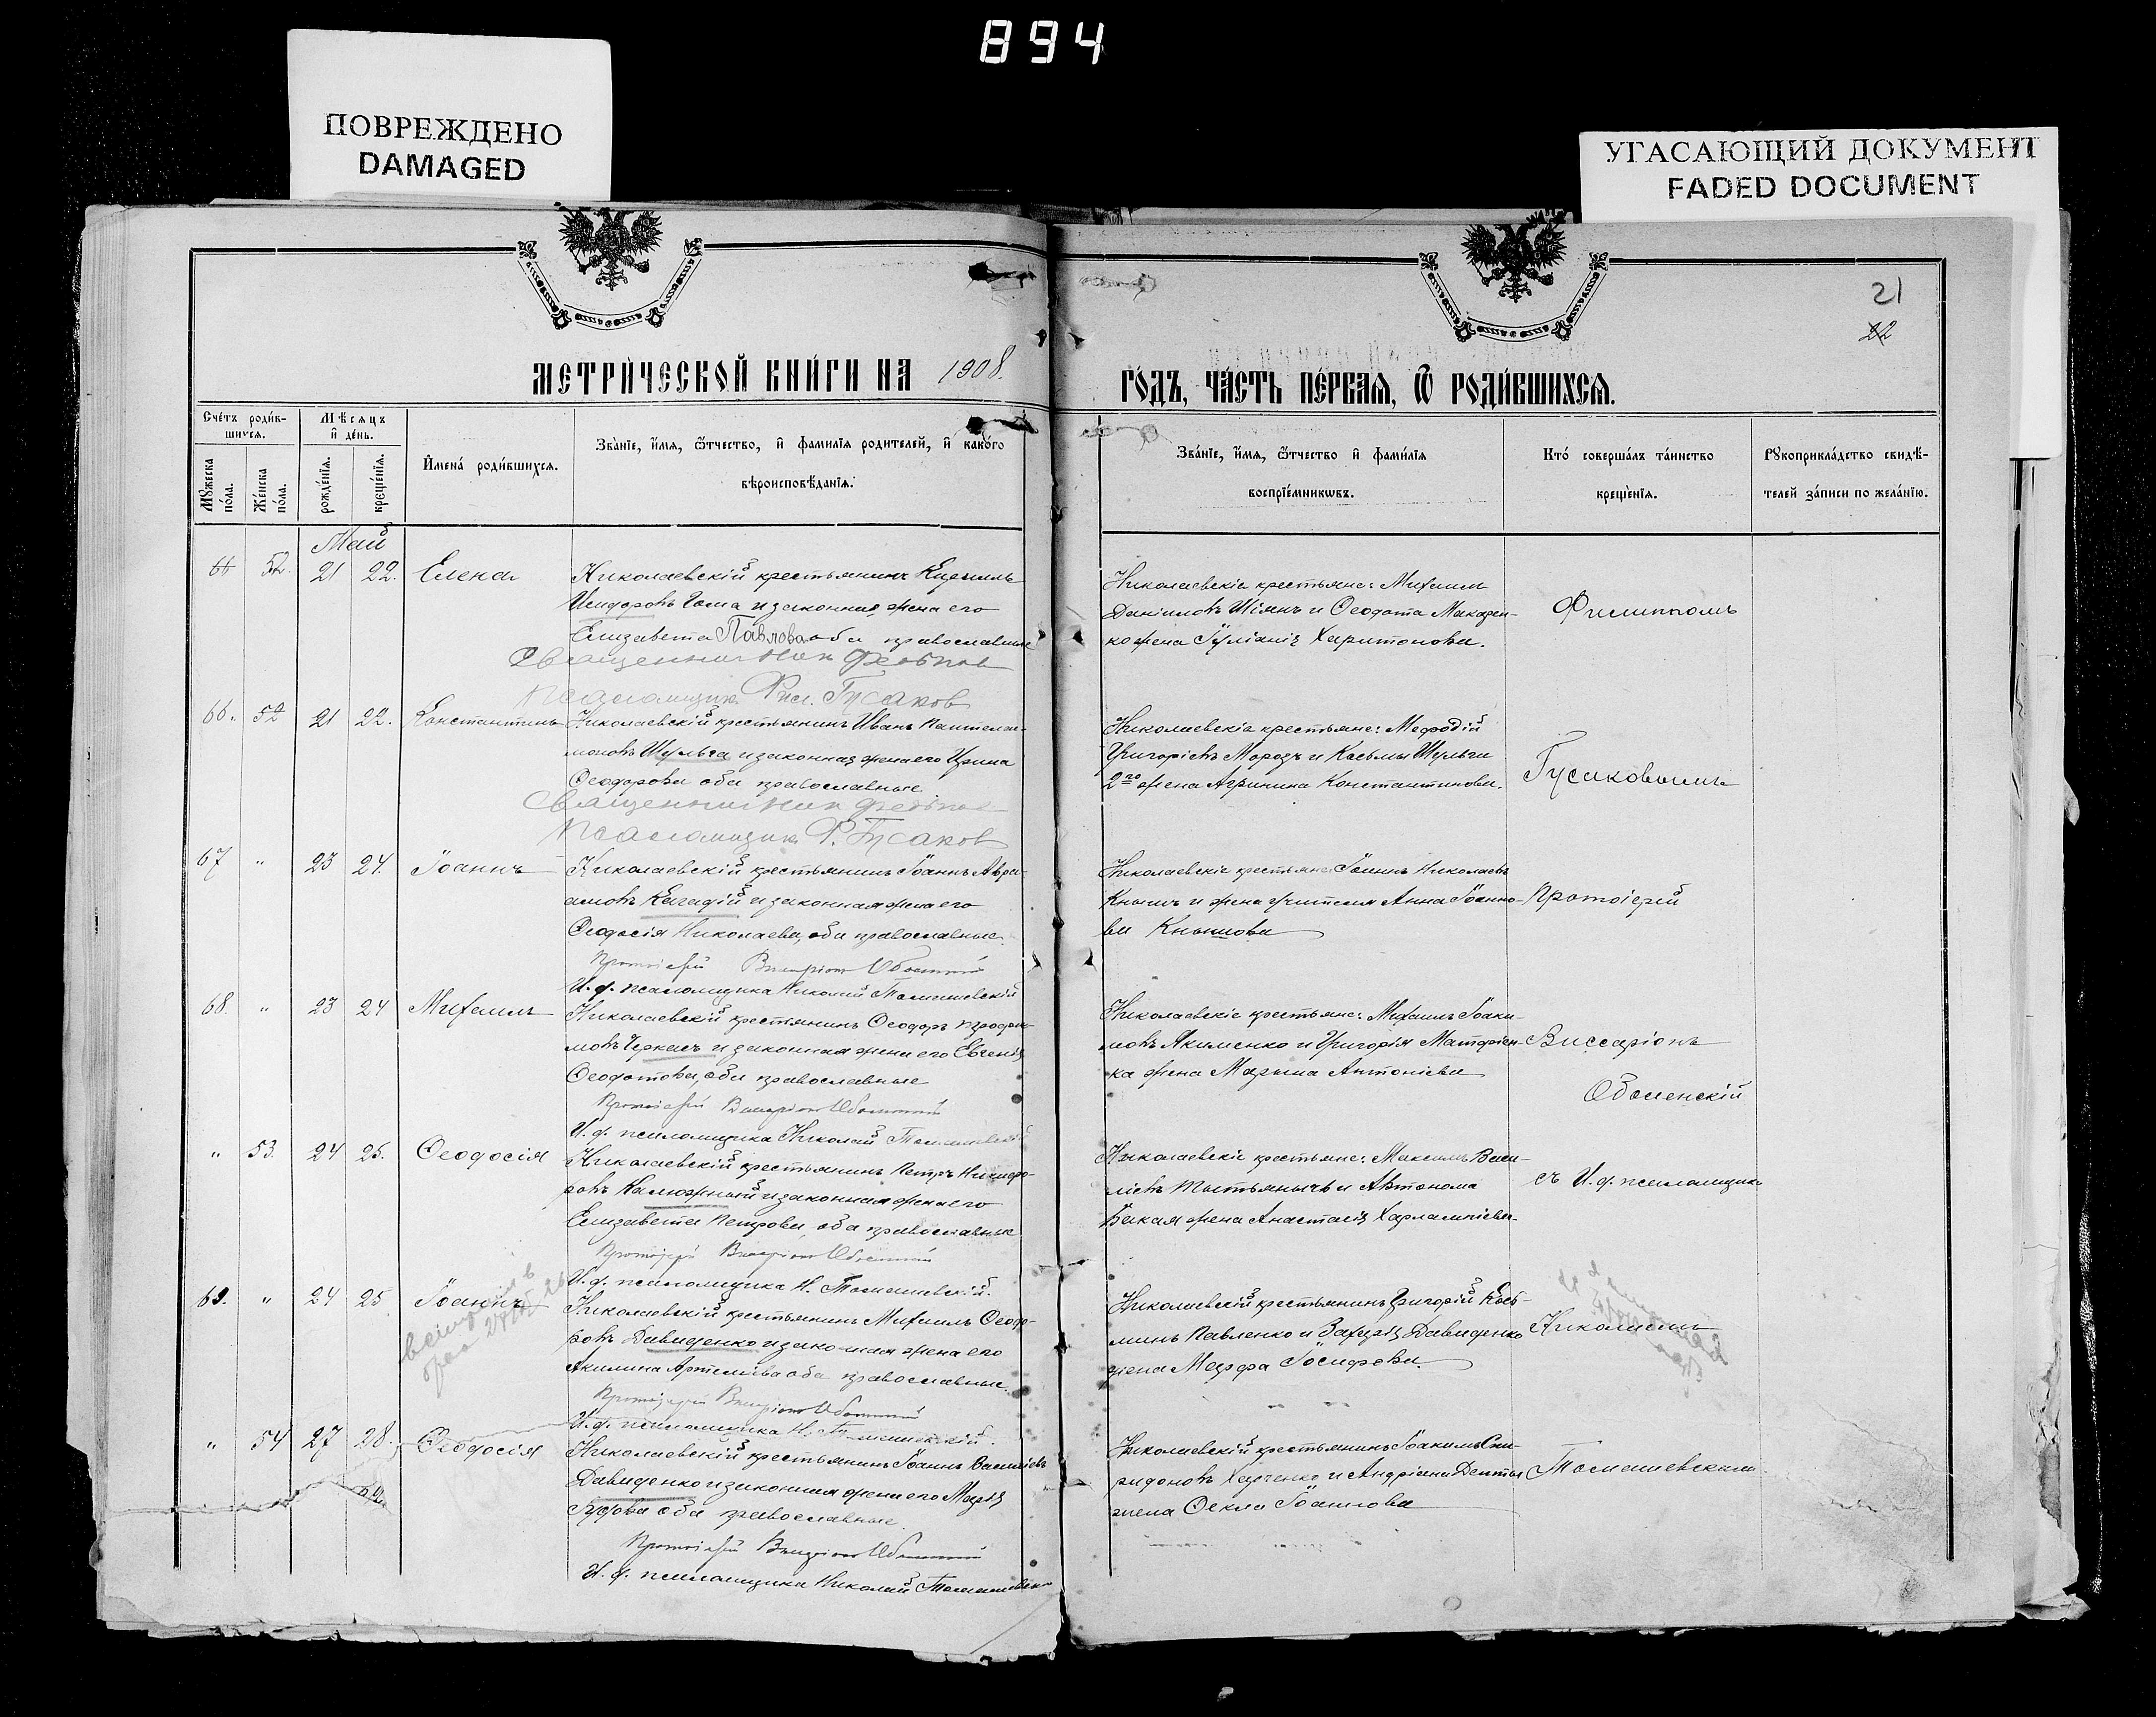 894
ПОВРЕЖДЕНО
DAMAGED
УГАСАЮЩИЙ ДОКУМЕНТ
FADED DOCUMENT
21
22
МЕТРИЧЕСКОЙ КНИГИ НА 1908.
ГОДЪ, ЧАСТЬ ПЕРВАЯ, Ѿ РОДИВШИХСЯ.
Счетъ родив-
шихся.
Мѣсяцъ
и день.
Мужеска
пола.
Женска
пола.
рожденія.
крещенія.
Имена родившихся.
Званіе, имя, ѿтчество, и фамилія родителей, и какого
вѣроисповѣданія.
Званіе, имя, ѿтчество и фамилія
воспріемниковъ.
Кто совершалъ таинство
крещенія.
Рукоприкладство свидѣ-
телей записи по желанію.
Май
66 52. 21 22. Елена
Николаевскій крестьянинъ Кириллъ
Исидоровъ Гома и законная жена его
Елизавета Павлова оба православные
Священник
Псаломщик Гусаков
Николаевскіе крестьяне: Михаилъ
Даніиловъ и Ѳеодота Макарен-
ко жена Іуліанія Харитонова.
Филипомъ
66. 52 21 22. Константинъ
Николаевскій крестьянинъ Иванъ Пантелеи-
моновъ Шульга и законная жена его Ирина
Ѳеодорова оба православные
Священник
Псаломщик Ф. Гусаков
Николаевскіе крестьяне: Мефодій
Григоріевъ Морозъ и Косьмы Шульги
2го жена Агрипина Константинова.
Гусаковымъ
67 " 23 24. Іоаннъ
Николаевскій крестьянинъ Іоаннъ Авра-
амовъ и законная жена его
Ѳеодосія Николаева, оба православные.
Протоіерей Виссаріонъ Оболенскій
И. ф. псаломщика Николай Томашевскій
Николаевскіе крестьяне: Іоаннъ Николаевъ
Кнышъ и жена учителя Анна Іоанно-
ва Кнышова
Протоіерей
68. " 23 24 Михаилъ
Николаевскій крестьянинъ Ѳеодоръ Трофи-
мовъ Черкасъ и законная жена его Евгенія
Ѳеодотова, оба православные
Протоіерей Виссаріонъ Оболенскій
И. ф. псаломщика Николай Томашевскій
Николаевскіе крестьяне: Михаилъ Іоаки-
мовъ Якименко и Григорія Матвіен-
ка жена Марина Антоніева
Виссаріонъ
Оболенскій
" 53. 24 25. Ѳеодосія
Николаевскій крестьянинъ Петръ Никифо-
ровъ Калюжный и законная жена его
Елизавета Петрова, оба православные
Протоіерей Виссаріонъ Оболенскій
И. ф. псаломщика Н. Томашевскій.
Николаевскіе крестьяне: Максимъ Васи-
ліевъ и Автонома
жена Анастасія Харлампіева.
съ И. ф. псаломщика
69. " 24 25 Іоаннъ
Николаевскій крестьянинъ Михаилъ Ѳеодо-
ровъ Давиденко и законная жена его
Акилина Артеміева оба православные.
Протоіерей Виссаріонъ Оболенскій
И. ф. псаломщика Н. Томашевскій.
Николаевскій крестьянинъ Григорій Козь-
минъ Павленко и Захарія Давиденко
жена Марфа Іосифова.
Николаемъ
" 54 27 28. Ѳеодосія
Николаевскій крестьянинъ Іоаннъ Василіевъ
Давиденко и законная жена его Марія
оба православные.
Протоіерей Виссаріонъ Оболенскій
И. ф. псаломщика Николай Томашевскій
Николаевскій крестьянинъ Іоакимъ Спи-
ридоновъ Харченко и Андріана
жена Ѳекла Іоаннова
Томашевскимъ